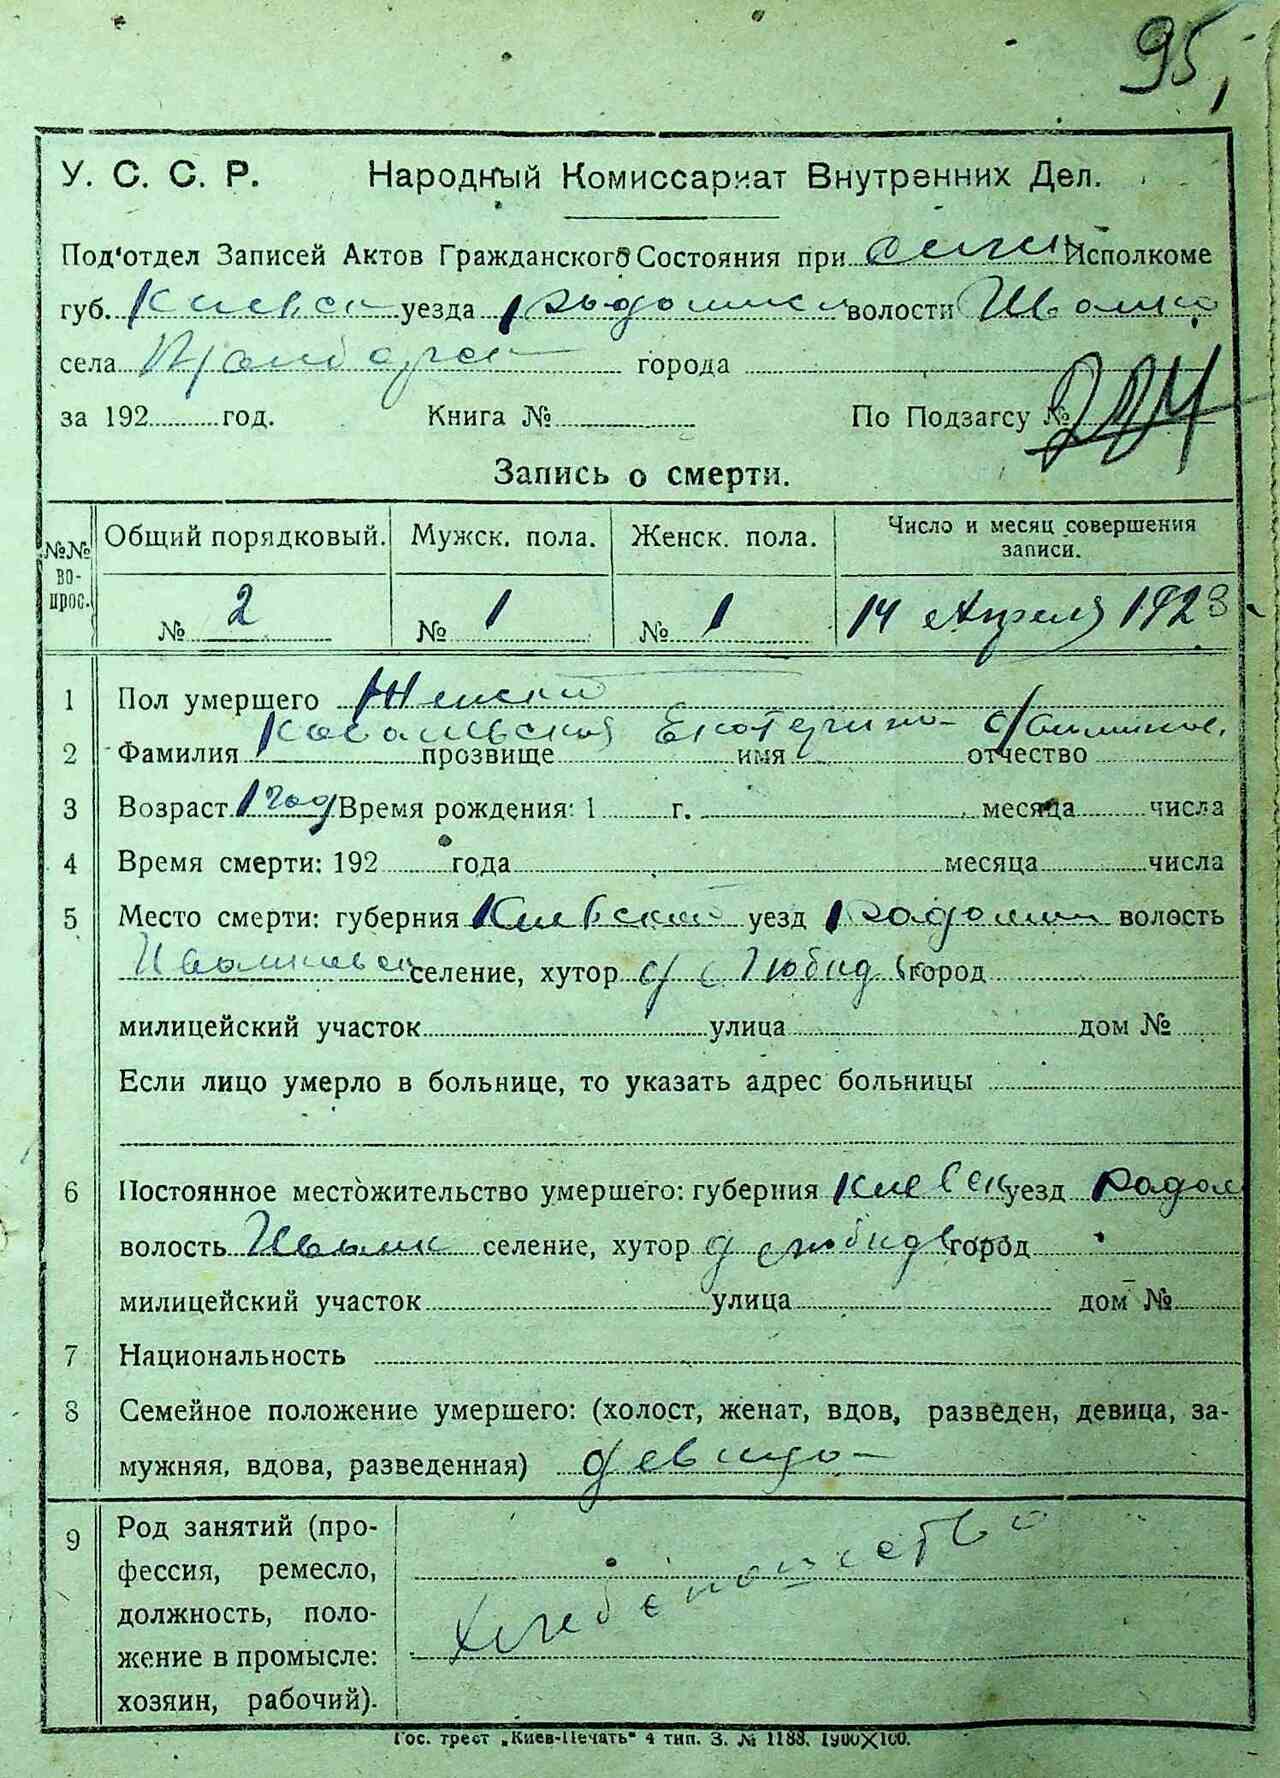 95,
У. С. С. Р. Народный Комиссариат Внутренних Дел.
Под'отдел Записей Актов Гражданского Состояния при Исполкоме
губ. Киевск уезда Радомисл волости
села города
за 192 год. Книга № По Подзагсу № 204
Запись о смерти.
№№ во-прос. Общий порядковый. Мужск. пола. Женск. пола. Число и месяц совершения записи.
№ 2 № 1 № 1 14 Апреля 1923
1 Пол умершего Женский
2 Фамилия Ковальская прозвище имя Екатерина отчество
3 Возраст 1 год Время рождения: 1 г. месяца числа
4 Время смерти: 192 года месяца числа
5 Место смерти: губерния Киевский уезд Радомисл волость
селение, хутор город
милицейский участок улица дом №
Если лицо умерло в больнице, то указать адрес больницы
6 Постоянное местожительство умершего: губерния Киевск уезд Радом
волость селение, хутор город
милицейский участок улица дом №
7 Национальность
8 Семейное положение умершего: (холост, женат, вдов, разведен, девица, за-
мужняя, вдова, разведенная) девица
9 Род занятий (про-
фессия, ремесло,
должность, поло-
жение в промысле:
хозяин, рабочий).
хлебопашество
Гос. трест „Киев-Печать" 4 тип. З. № 1188. 1900X100.